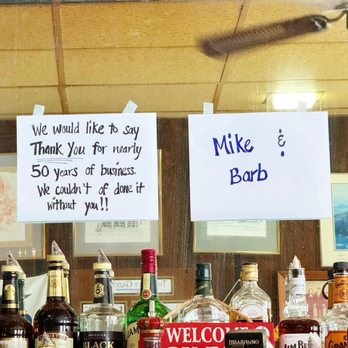 We would like to say
Thank You for nearly
50 years of business.
We couldn't of done it
without you!!
Mike &
Barb
BLACK
WELCOME
JIM BEAM